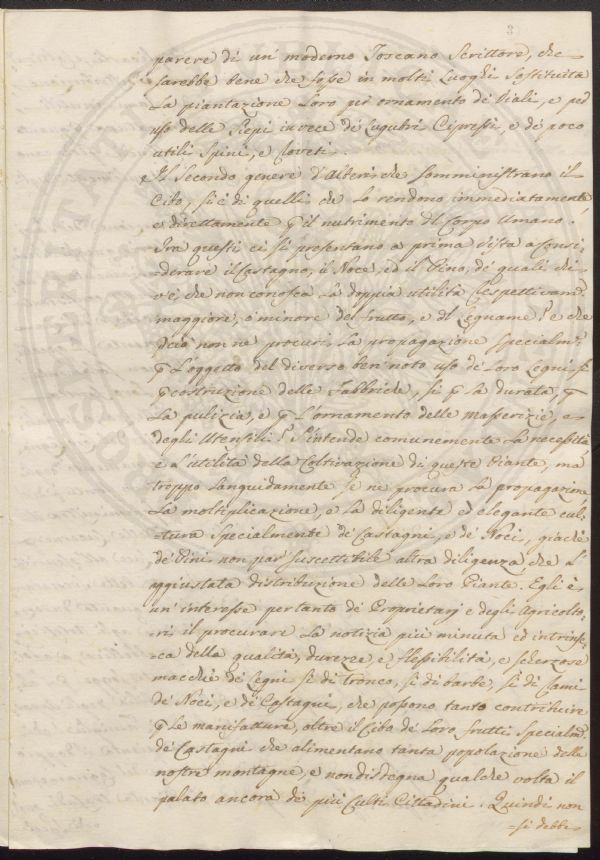 parere di un' moderno Toscano Scrittore, che
sarebbe bene che fosse in molti Luoghi Sostituita
La piantazione Loro pr ornamento de Viali, e per
uso delle Siepi in vece de' Lugubri Cipressi, e de' poco
utili Spini, e Roveti.
Il Secondo genere d'Alberi che Somministrano il
Cibo, si è di quelli che Lo rendono immediatamente,
e direttamente p il nutrimento del Corpo Umano.
Fra questi ci si presentano a prima vista a Consi
derare il Castagno, il Noce, ed il Pino, de' quali chi
v'è, che non conosca La doppia utilità respettivam.
maggiore, o minore del frutto, e del Legname? e che
perciò non ne procuri La propagazione Specialm.
p L'oggetto del diverso ben' noto uso de Loro Legni Sì
p costruzione delle Fabbriche, sì p La durata, p
La pulizia, e p L'ornamento delle masserizie, e
degli Utensili? S'intende comunemente La necessità,
e L'utilità della Coltivazione di queste Piante, ma
troppo Languidamente se ne procura La propagazione
La moltiplicazione, e La diligente ed elegante cul=
tura Specialmente de' Castagni, e de' Noci, giacchè
de' Pini non par' suscettibile altra diligenza, che L'
aggiustata distribuzione delle Loro Piante. Egli è
un' interesse pertanto de' Proprietarj e degli Agricolto
ri il procurare La notizia più minuta ed intrinse
ca della qualità, durezze, e flessibilità, e scherzose
macchie de' Legni sì di tronco, sì di barbe, sì di rami
de' Noci, e de' Castagni, che possono tanto contribuire
p Le manifatture, oltre il Cibo de' Loro frutti Specialm.
de' Castagni che alimentano tanta popolazione delle
nostre montagne, e non disdegna qualche volta il
palato ancora de più Culti Cittadini. Quindi non
=si debbe